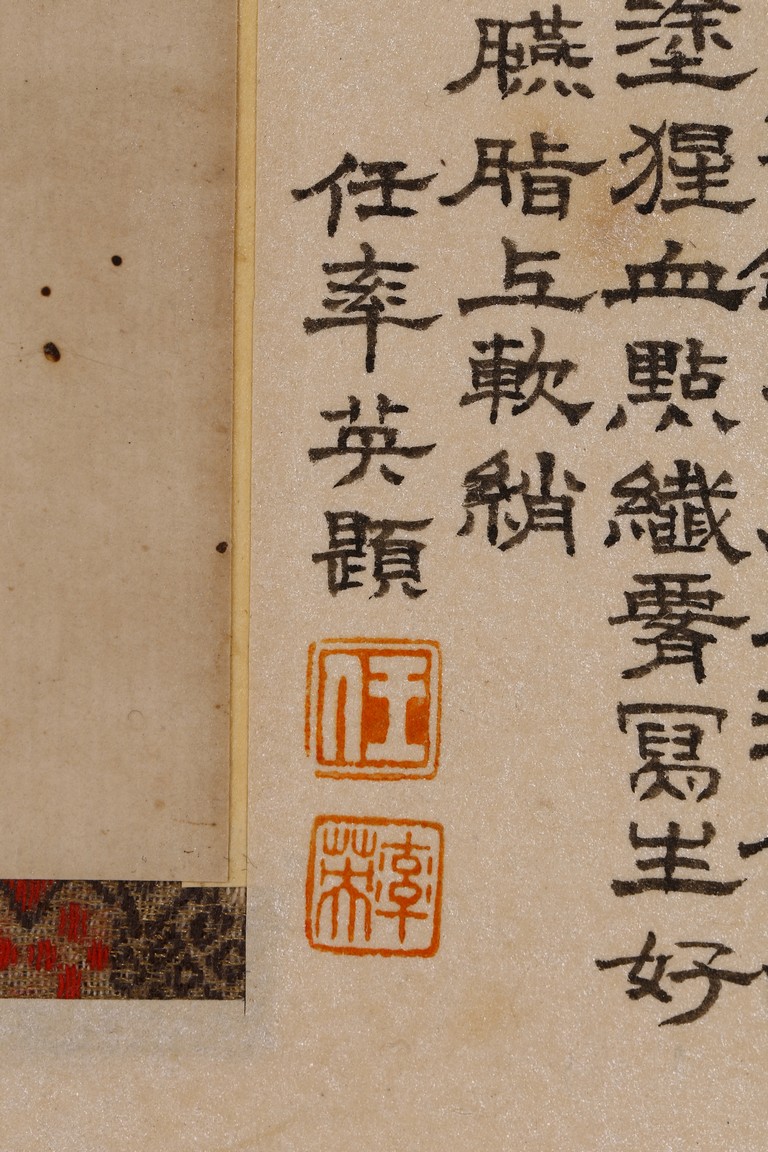 塗猩血點纖寫生好
臙脂上軟綃
任率英題
任
率英